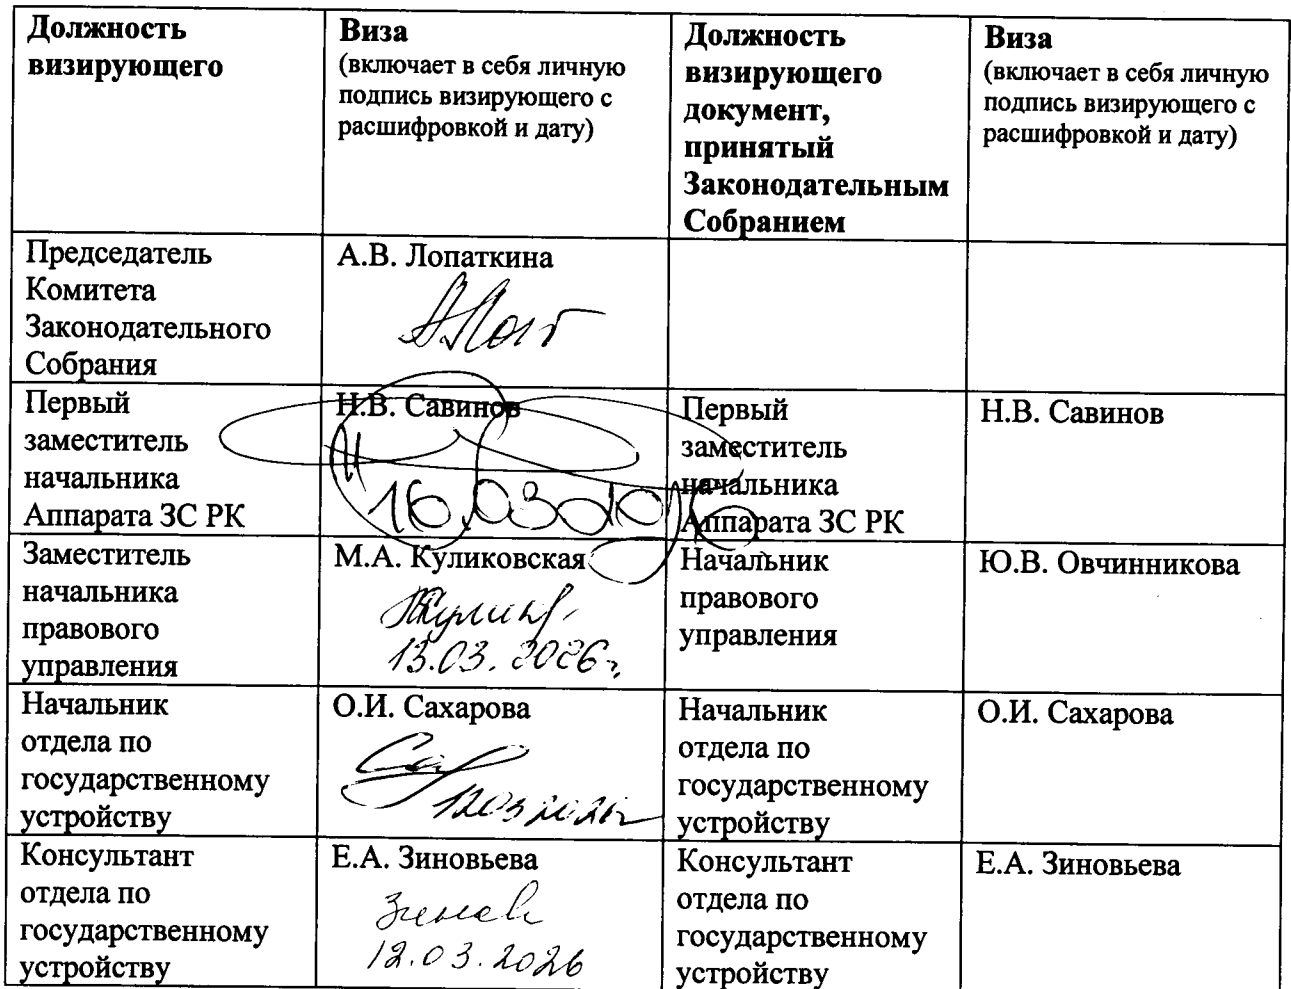 Должность
визирующего
Виза
(включает в себя личную
подпись визирующего с
расшифровкой и дату)
Должность
визирующего
документ,
принятый
Законодательным
Собранием
Виза
(включает в себя личную
подпись визирующего с
расшифровкой и дату)
Председатель
Комитета
Законодательного
Собрания
А.В. Лопаткина
Первый
заместитель
начальника
Аппарата ЗС РК
Н.В. Савинов
16.03.2026
Первый
заместитель
начальника
Аппарата ЗС РК
Н.В. Савинов
Заместитель
начальника
правового
управления
М.А. Куликовская
13.03.2026г.
Начальник
правового
управления
Ю.В. Овчинникова
Начальник
отдела по
государственному
устройству
О.И. Сахарова
12.03.2026г
Начальник
отдела по
государственному
устройству
О.И. Сахарова
Консультант
отдела по
государственному
устройству
Е.А. Зиновьева
12.03.2026
Консультант
отдела по
государственному
устройству
Е.А. Зиновьева